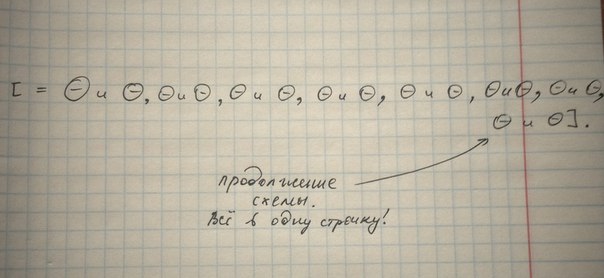 [ = ⊖ и ⊖, ⊖ и ⊖, ⊖ и ⊖, ⊖ и ⊖, ⊖ и ⊖, ⊖ и ⊖, ⊖ и ⊖,
⊖ и ⊖].
продолжение
схемы.
Всё в одну строчку!